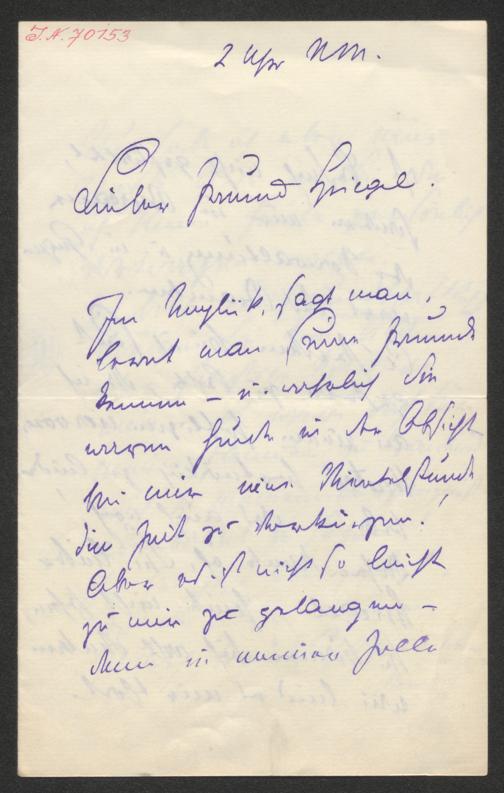 I.N. 70153
2 Uhr Nm.
Lieber Freund Spiegel.
Im Unglück, sagt man,
lernt man seine Freunde
kennen – u. wirklich Sie
waren heute in der Absicht
bei mir mir eine Viertelstunde
die Zeit zu verkürzen!
Aber es ist nicht so leicht
zu mir zu gelangen –
denn in meiner Zelle